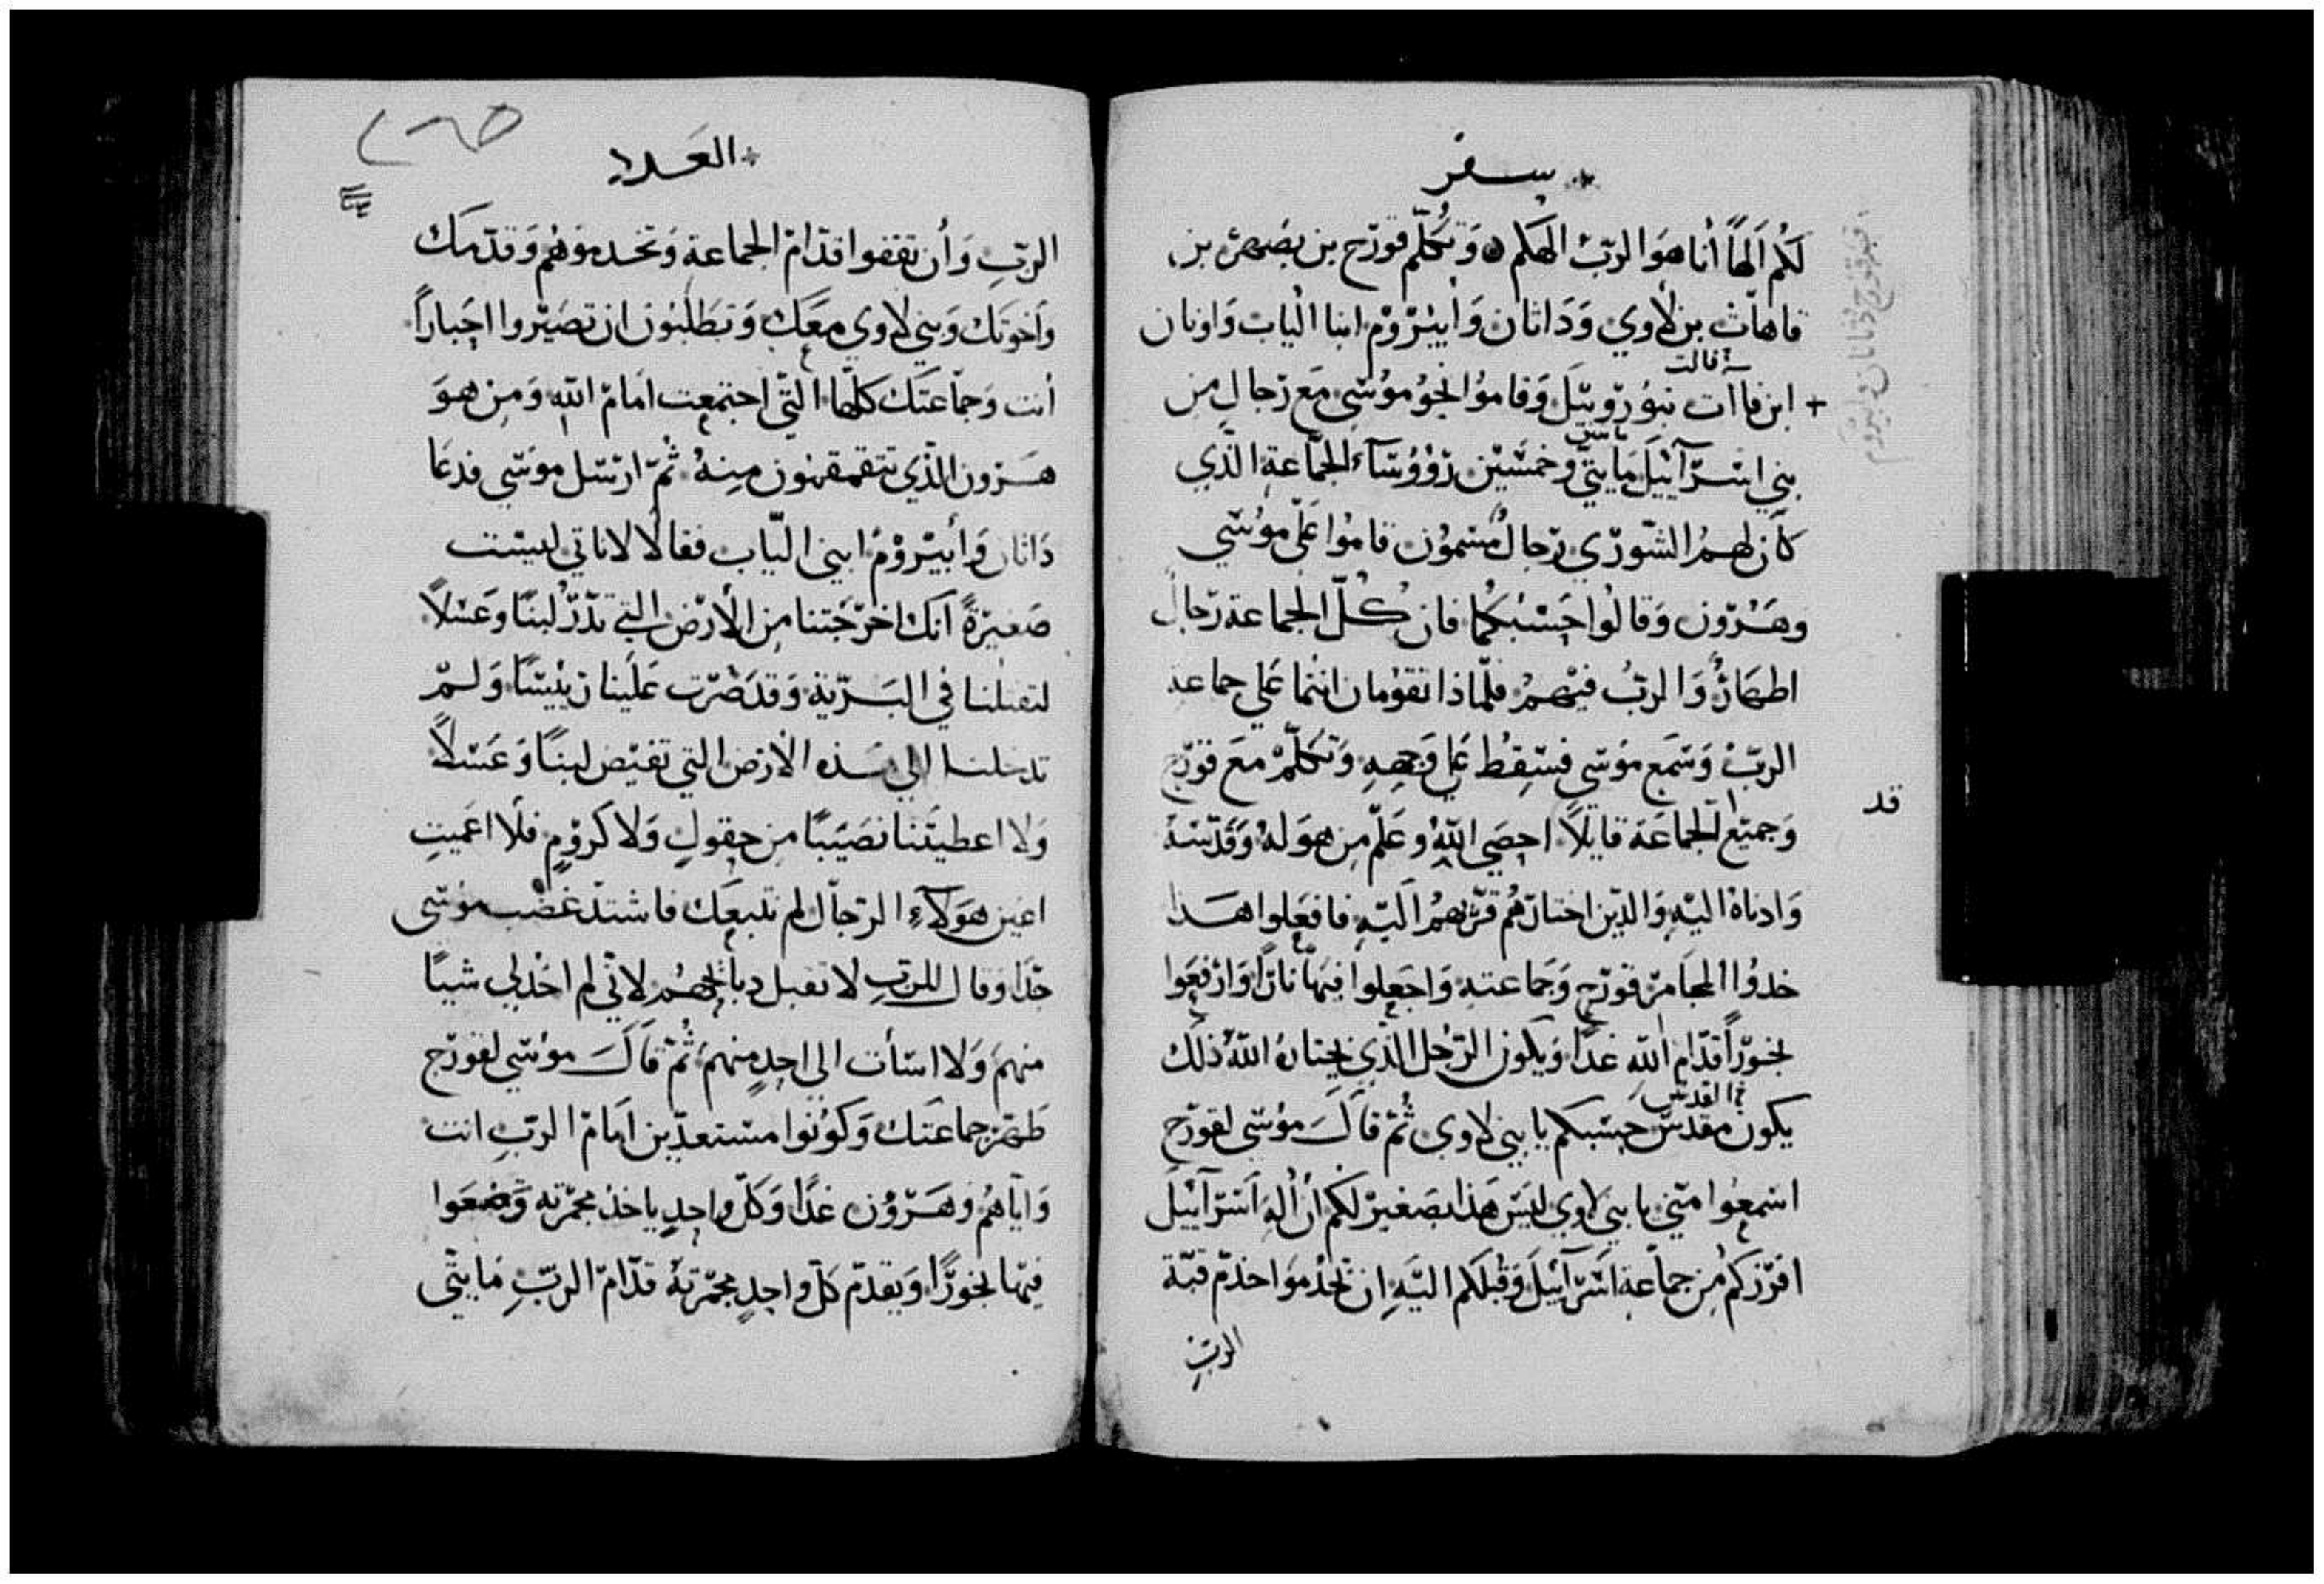 سفر
لكم الهاً انا هو الرب الهكم ٥ وتكلم قورح بن يصهر بن
قاهاث بن لاوي وداثان وابيروم ابنا الياب واونان
قالت
+ ابن فاات بنو روبيل وقاموا نحو موسى مع رجال من
بني اسرائيل مايتي وخمسين رؤوساء الجماعة الذي
كان لهم الشوري رجال مسمون قاموا على موسي
وهرون وقالوا حسبكما فان كل الجماعة رجال
اطهار والرب فيهم فلماذا تقومان انتما علي جماعة
الرب وسمع موسى فسقط علي وجهه وتكلم مع قورح
قد
وجميع الجماعة قايلاً احصي الله وعلم من هو له وقدسه
وادناه اليه والذين اختارهم قربهم اليه فافعلوا هذا
خدوا المجامر قورح وجماعته واجعلوا فيها ناراً وارفعوا
بخوراً قدام الله غداً ويكون الرجل الذي يختاره الله ذلك
القدس
يكون مقدس حسبكم يا بني لاوي ثم قال موسى لقورح
اسمعوا مني يا بني لاوي ليس هذا بصغير لكم ان اله اسرائيل
افرزكم من جماعة اسرائيل وقبلكم اليه ان تخدموا خدم قبة
الرب
العدد
الرب وأن تقفوا قدام الجماعة وتخدموهم وقدمك
واخوتك وبني لاوي معك وتطلبون ان تصيروا احباراً
أنت وجماعتك كلها التي اجتمعت امام الله ومن هو
هرون الذي تتقمقمون منه ثم ارسل موسي فدعا
داثان وأبيروم ابني الياب فقالا لا ناتي ليست
صغيرة انك اخرجتنا من الأرض التي تدر لبناً وعسلاً
لتقتلنا في البرية وقد صرت علينا رييساً ولم
تدخلنا الي هذه الارض التي تفيض لبناً وعسلاً
ولا اعطيتنا نصيباً من حقول ولا كروم فلا اعميت
اعين هولاء الرجال لم نتبعك فاشتد غضب موسى
جداً وقال للرب لا تقبل دبايحهم لاني لم اخد لي شياً
منهم ولا اسأت الى احد منهم ثم قال موسي لقورح
طهر جماعتك وكونوا مستعدين امام الرب انت
واياهم وهرون غداً وكل واحد ياخذ مجمرته وضعوا
فيها بخوراً ويقدم كل واحد مجمرته قدام الرب مايتى